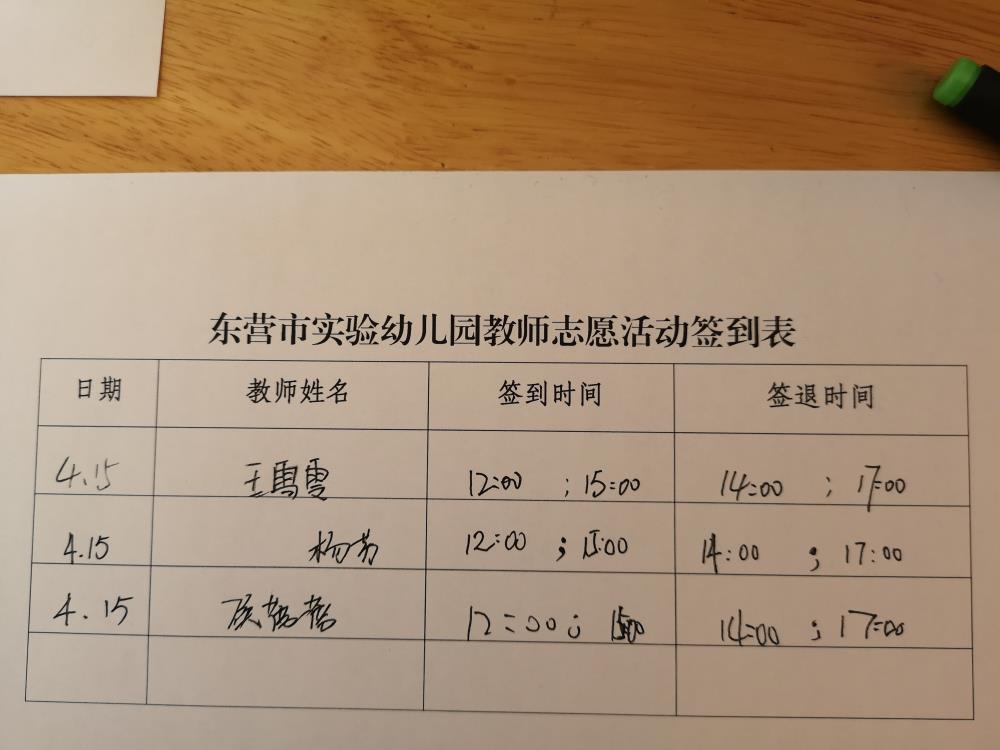 东营市实验幼儿园教师志愿活动签到表
日期 教师姓名 签到时间 签退时间
4.15 王雪雯 12:00 ; 15:00 14:00 ; 17:00
4.15 杨芳 12:00 ; 15:00 14:00 ; 17:00
4.15 12:00 ; 15:00 14:00 ; 17:00